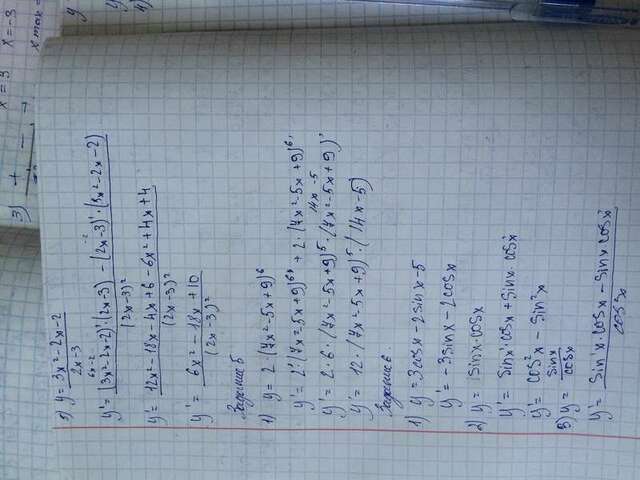 x = 3 x = -3
3) + - +
x max =
5) y = (3x² - 2x - 2)/(2x - 3)
6x-2 -2
y' = ((3x² - 2x - 2)' · (2x - 3) - (2x - 3)' · (3x² - 2x - 2))/(2x - 3)²
y' = (12x² - 18x - 4x + 6 - 6x² + 4x + 4)/(2x - 3)²
y' = (6x² - 18x + 10)/(2x - 3)²
Задание 5
1) y = 2 · (7x² - 5x + 9)⁶
y' = 2' · (7x² - 5x + 9)⁶ + 2 · (7x² - 5x + 9)⁶'
14x - 5
y' = 2 · 6 · (7x² - 5x + 9)⁵ · (7x² - 5x + 9)'
y' = 12 · (7x² - 5x + 9)⁵ · (14x - 5)
Задание 6.
1) y = 3cosx - 2sinx - 5
y' = -3sinx - 2cosx
2) y = sinx · cosx
y' = sinx' · cosx + sinx · cosx'
y' = cos²x - sin²x
3) y = sinx/cosx
y' = (sin'x · cosx - sinx cosx')/cos²x